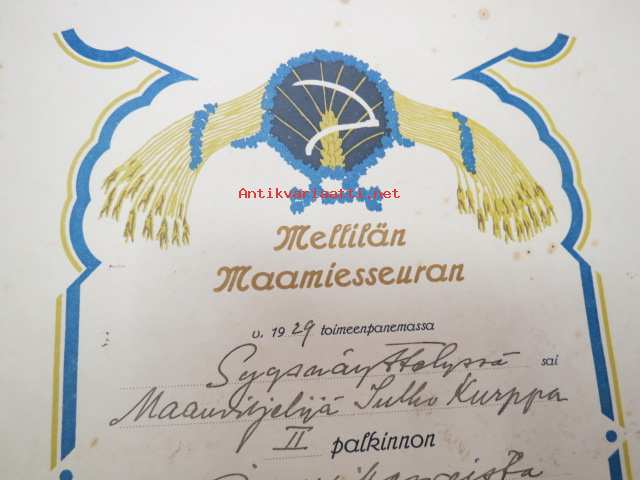 Antikvariaatti.net
Mellilän
Maamiesseuran
v. 1929 toimeenpanemassa
Syysnäyttelyssä sai
Maanviljelijä Julho Kurppa
II palkinnon